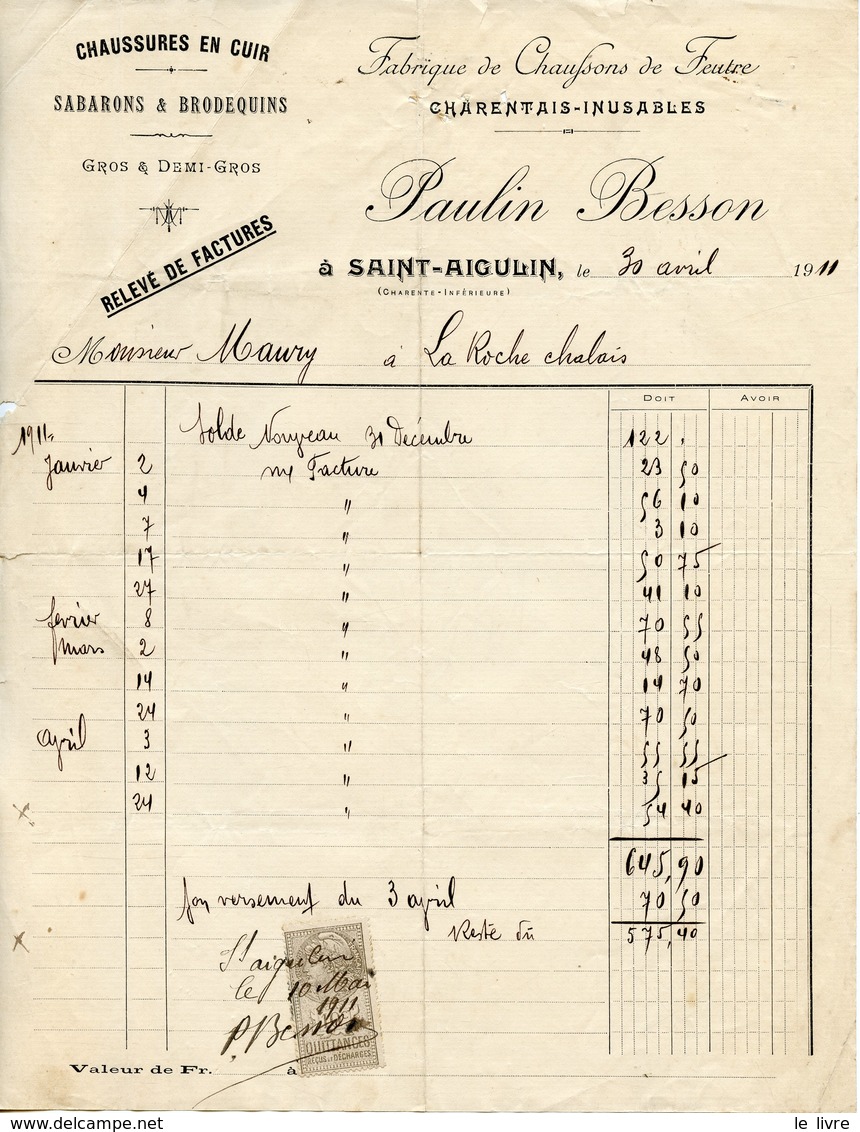 CHAUSSURES EN CUIR
SABARONS & BRODEQUINS
GROS & DEMI-GROS
RELEVÉ DE FACTURES
Fabrique de Chaussons de Feutre
CHARENTAIS-INUSABLES
Paulin Besson
à SAINT-AIGULIN, le 30 avril 1911
(CHARENTE-INFÉRIEURE)
Monsieur Maury à La Roche chalais
DOIT AVOIR
1911. Solde Nouveau 31 Décembre 122 "
Janvier 2 Facture 23 50
4 " 56 10
7 " 3 10
17 " 50 75
27 " 41 10
fevrier 8 " 70 55
mars 2 " 48 50
14 " 14 70
24 " 70 50
april 3 " 55 55
12 " 35 15
24 " 54 40
645,90
son versement du 3 april 70 50
Reste dû 575,40
St aigulin
le 10 Mai
1911
P. Besson
QUITTANCES
REÇUS ET DÉCHARGES
Valeur de Fr. à
www.delcampe.net
le livre